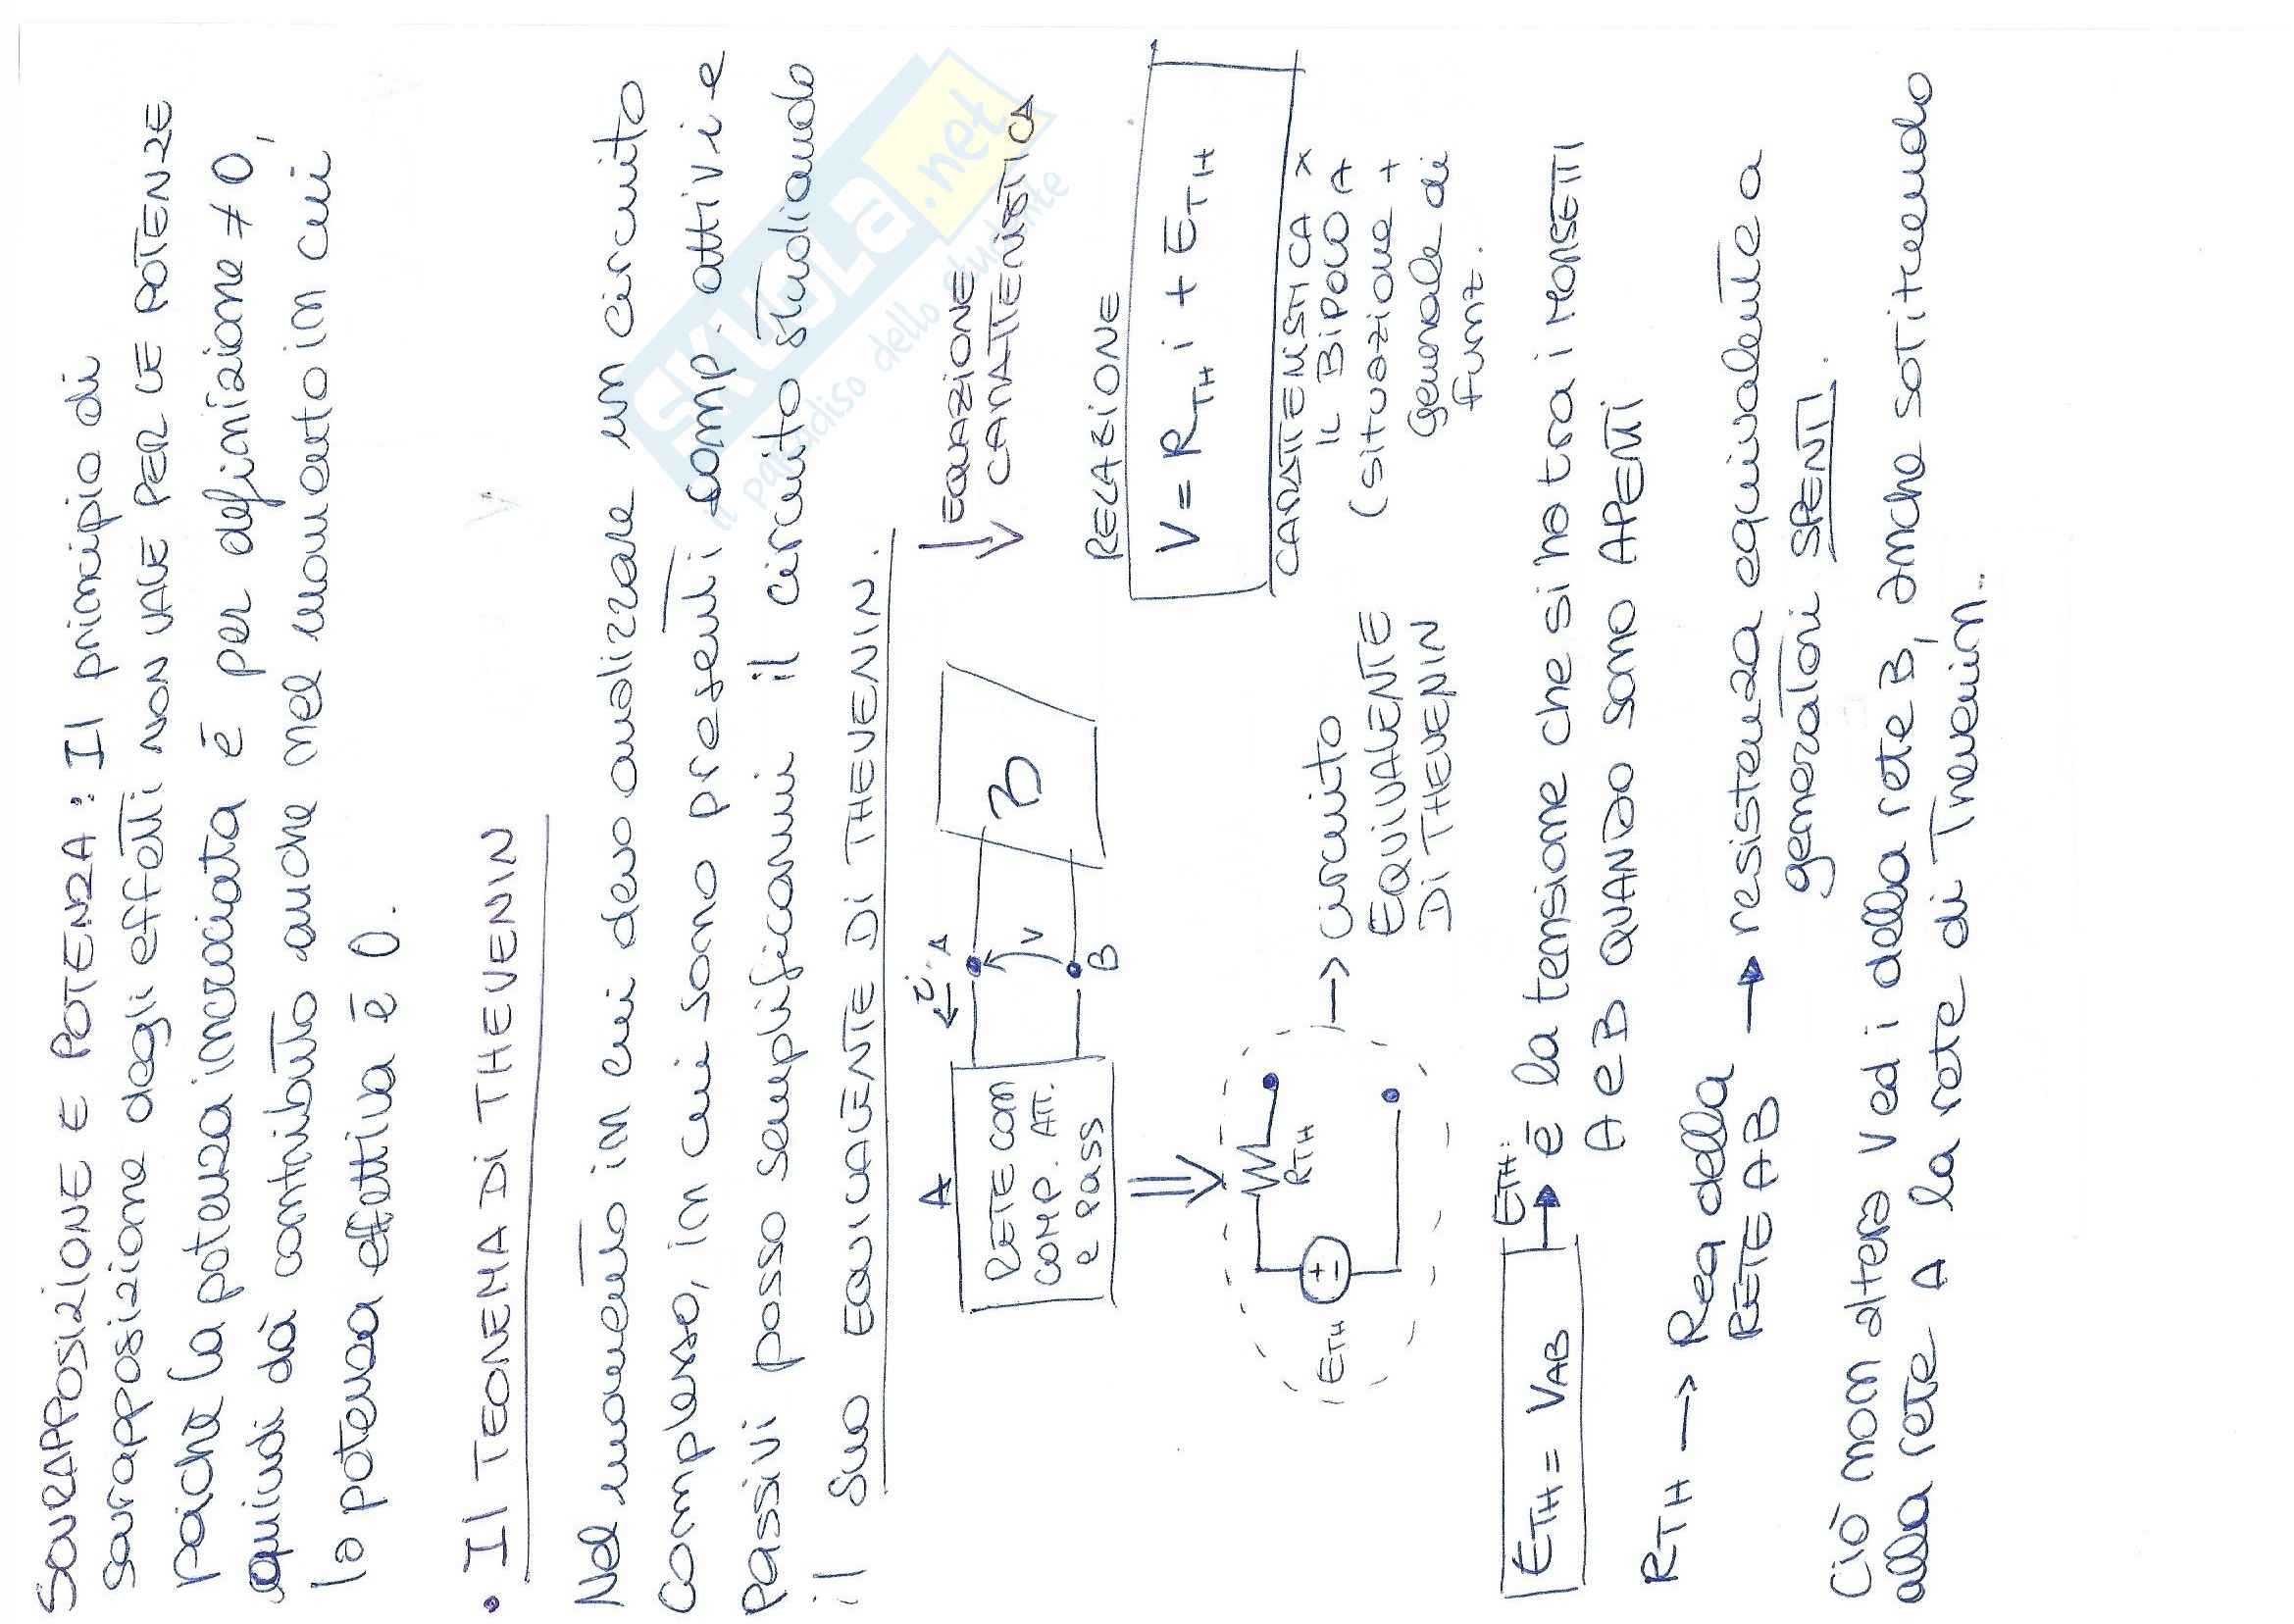 SOVRAPPOSIZIONE E POTENZA: Il principio di
sovrapposizione degli effetti NON VALE PER LE POTENZE
poiché la potenza incrociata è per definizione ≠ 0,
quindi dà contributo anche nel momento in cui
la potenza effettiva è 0.
• Il TEOREMA DI THEVENIN
Nel momento in cui devo analizzare un circuito
complesso, in cui sono presenti comp. attivi e
passivi posso semplificarmi il circuito studiando
il suo EQUIVALENTE DI THEVENIN.
EQUAZIONE
CARATTERISTICA
A
RETE CON
COMP. ATT.
e PASS
i
A
V
B
B
RELAZIONE
V = RTH i + ETH
CARATTERISTICA x
IL BIPOLO A
(situazione +
generale di
funz.
ETH
RTH
→ circuito
EQUIVALENTE
DI THEVENIN
ETH = VAB
ETH:
→ è la tensione che si ha tra i MORSETTI
A e B QUANDO sono APERTI
RTH → Req della → resistenza equivalente a
RETE AB
generatori SPENTI.
Ciò non altera V ed i della rete B, anche sotituendo
alla rete A la rete di Thevenin.
SKUOLA.net
il paradiso dello studente